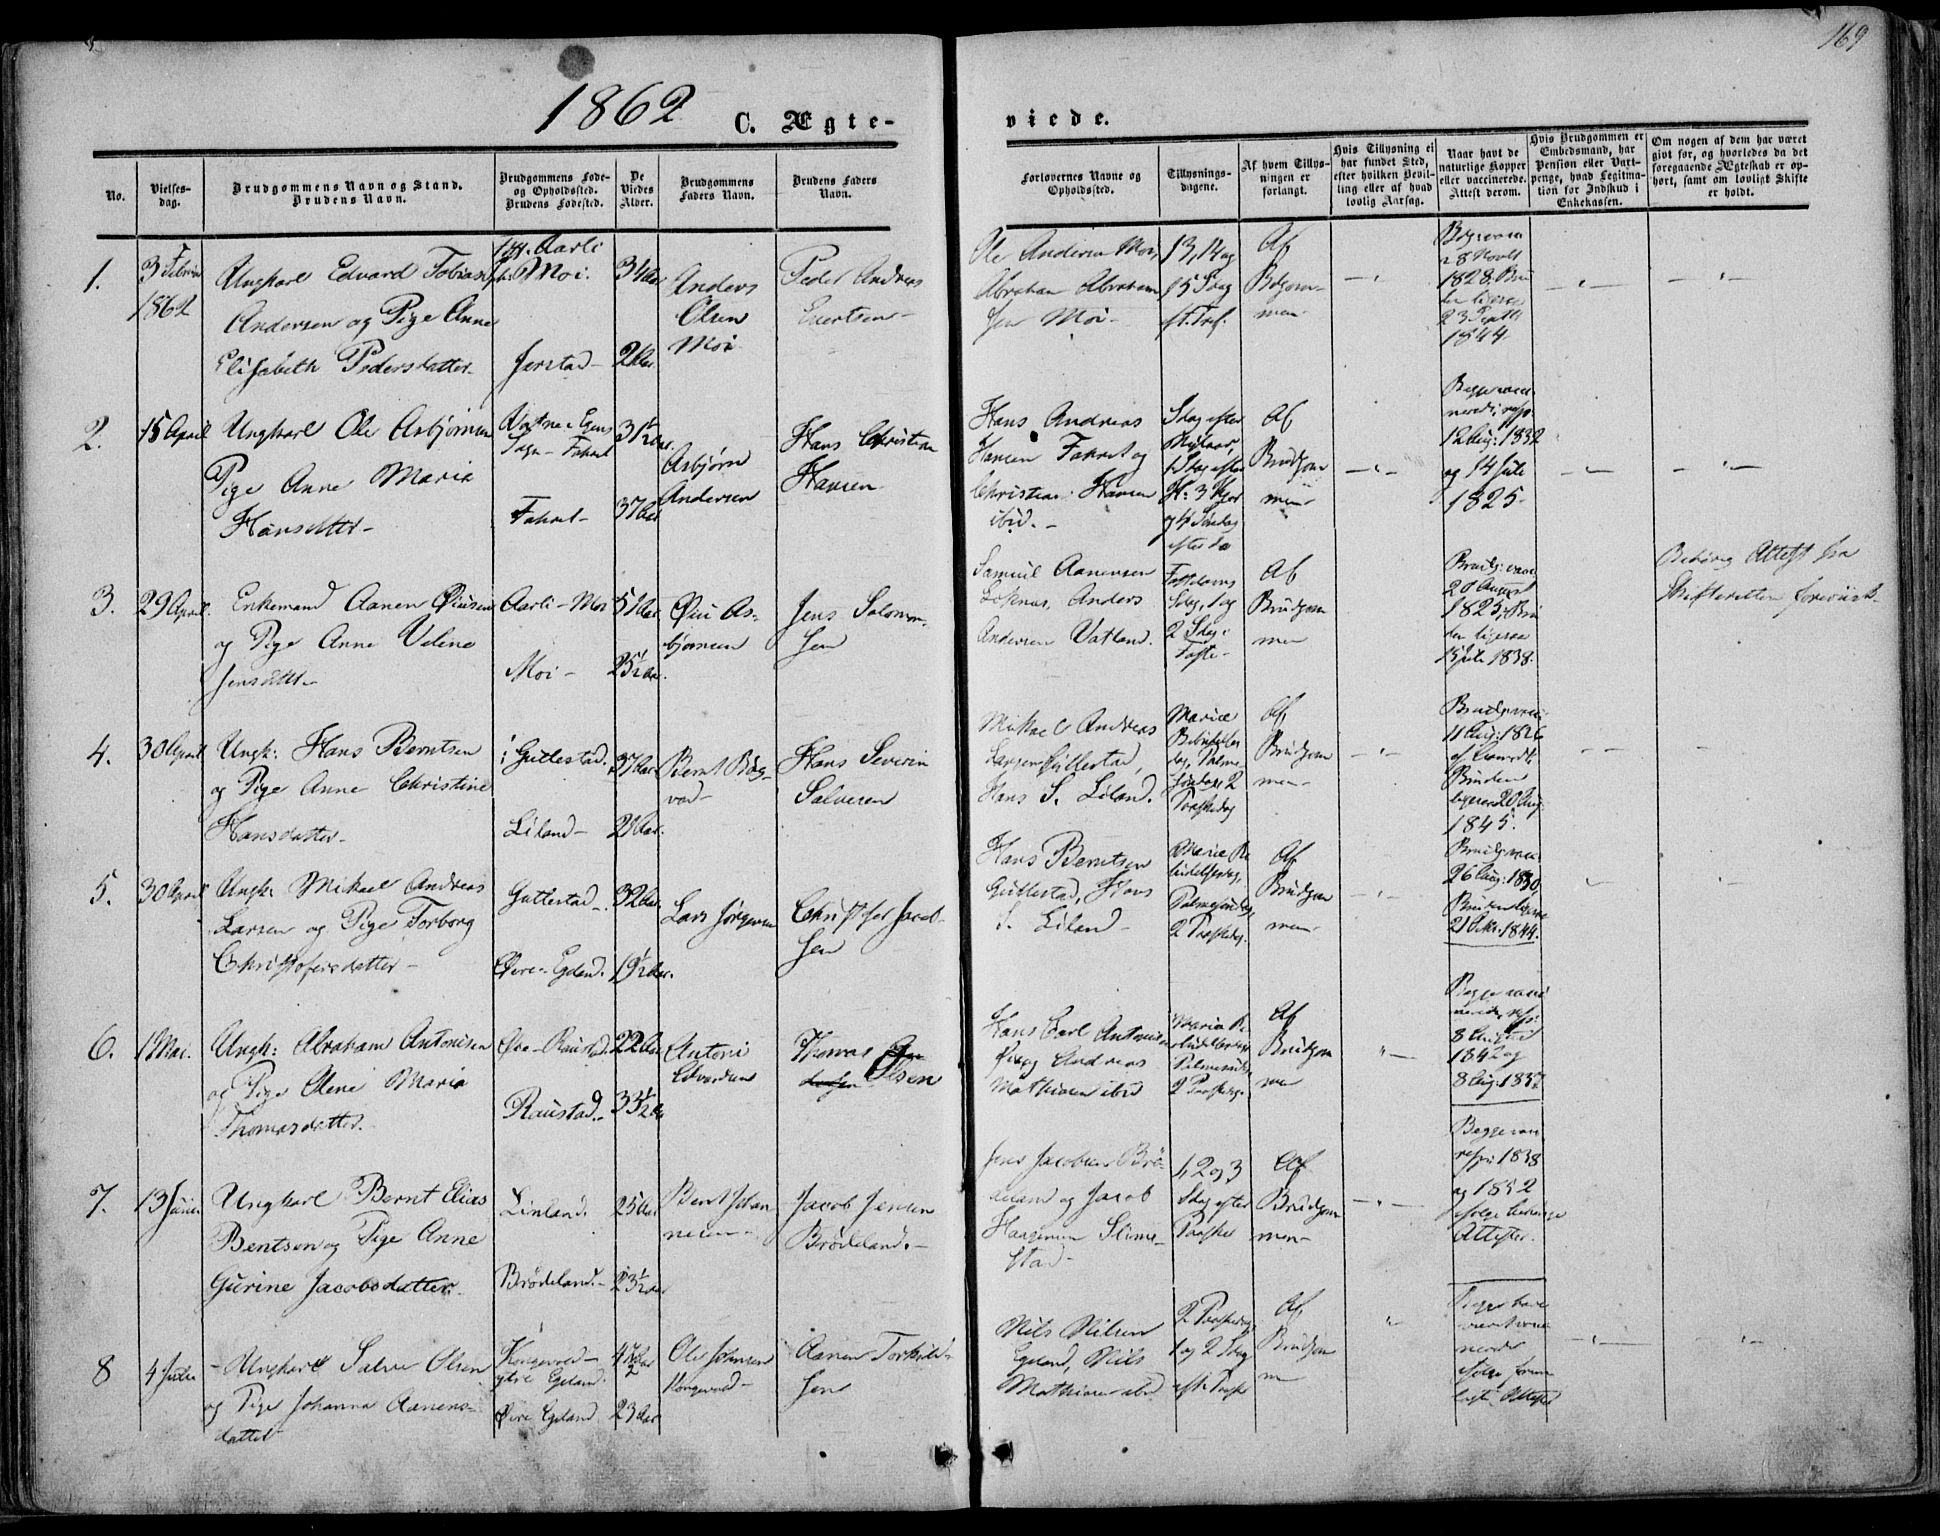 169
1862
C. Ægte-
viede.
No.
Vielses-
dag.
Brudgommens Navn og Stand.
Brudens Navn.
Brudgommens Føde-
og Opholdssted.
Brudens Fødested.
De
Viedes
Alder.
Brudgommens
Faders Navn.
Brudens Faders
Navn.
Forlovernes Navne og
Opholdssted.
Tillysnings-
dagene.
Af hvem Tillys-
ningen er
forlangt.
Hvis Tillysning ei
har fundet Sted,
efter hvilken Bevil-
ling eller af hvad
lovlig Aarsag.
Naar havt de
naturlige Kopper
eller vaccinerede.
Attest derom.
Hvis Brudgommen er
Embedsmand, har
Pension eller Vart-
penge, hvad Legitima-
tion for Indskud i
Enkekassen.
Om nogen af dem har været
givt før, og hvorledes da det
foregaaende Ægteskab er op-
hørt, samt om lovligt Skifte
er holdt.
1.
1862
Ungkarl Edvard Tobias
Andersen og Pige Anne
Elisabeth Pedersdatter
Aarli
Moi.
Jerstad
Anders
Olsen
Moi
Peder Andreas
Evertsen
Ole Andersen Moi,
Abraham Abraham
sen Moi
13, 14 og
15 Sdag
eft. Tref.
Af
Bdgom-
men
1828
1844
2.
15 April
Ungkarl Ole Asbjørnsen
Pige Anne Maria
Hansdatter
Sogn
31½ Aar
37 Aar
Asbjørn
Andersen
Hans Christian
Hansen
Hans Andreas
Hansen og
Christian Hansen
ibid.
Sdag efter
Nytaar,
1 Sdag efter
H. 3 Kger
og 4 Søndag
efter do
Af
Brudgom
men
12 Aug: 1832
og 14 Juli
1825
3.
29 April
Enkemand Aanen Øiusen
og Pige Anne Veline
Jensdatter
Aarli - Moi
Moi
51 Aar
25½ Aar
Øiu As-
bjørnsen
Jens Salomon-
sen
Samuel Aanensen
Anders
Andersen Vatland.
Fastelavns
Sdag, 1 og
2 Sdag i
Faste
Af
Brudgom
men
20 August
1825, Bru
den ligesaa
15 Juli 1838.
Behørig Attest fra
Skifteretten forevist
4.
30 April
Ungk: Hans Berntsen
og Pige Anne Christine
Hansdatter
Guttestad.
Liland
37 Aar
Bernt
Hans Severin
Salvesen
Mikael Andreas
Larsen Guttestad,
Hans S. Liland.
Mariæ
Bebudelses
dag, Palme
Søndag, 2
Paaskedag
Af
Brudgom
men
11 Aug: 1826
Bruden
ligesaa 20 Aug:
1845.
5.
30 April
Ungk: Mikael Andreas
Larsen og Pige Torborg
Christofersdatter
Guttestad
Øvre-Egeland.
32 Aar
19½ Aar.
Lars Jørgensen
Christofer Jacob-
sen
Hans Berntsen
Guttestad, Hans
S. Liland
Mariæ Be
budelsesdag,
Palmesøndag
2 Paaskedag.
Af
Brudgom
men
26 Aug: 1830
1844.
6.
1 Mai.
Ungk: Abraham Antonisen
og Pige Olene Maria
Thomasdatter
Øvre-Raustad.
Raustad.
22 Aar
33½ Aar
Antoni
Edvardsen
Thomas
Olsen
Hans Carl Antonisen
og Andreas
Mathiasen ibid
Maria Be
budelsesdag
Palmesønd.
2 Paaskedag.
Af
Brudgom
men
1842 og
8 Aug: 1832
7.
13 Juni
Ungkarl Bernt Elias
Bentsen og Pige Anne
Gurine Jacobsdatter
Linland.
Brödeland.
25 Aar
23½ Aar
Bent Johan
nesen
Jacob Jensen
Brödeland.
Jens Jacobsen Brö-
deland og Jacob
Haagensen Slime-
stad
1, 2 og 3
Sdag efter
Paaske
Af
Brudgom
men
resp: 1838
og 1852
ifølge
Attester.
8
4 Juli
Ungkarl Salve Olsen
og Pige Johanna Aanens-
datter
Kongevold
ytre Egeland.
Øvre Egeland
23 Aar
Ole Johnsen
Kongevold
Aanen Torkild-
sen
Nils Nilsen
Egeland, Nils
Mathiasen ibid
2 Paaskedag
1 og 2 Sdag
eft. Paaske
Af
Brudgom
m
Attester